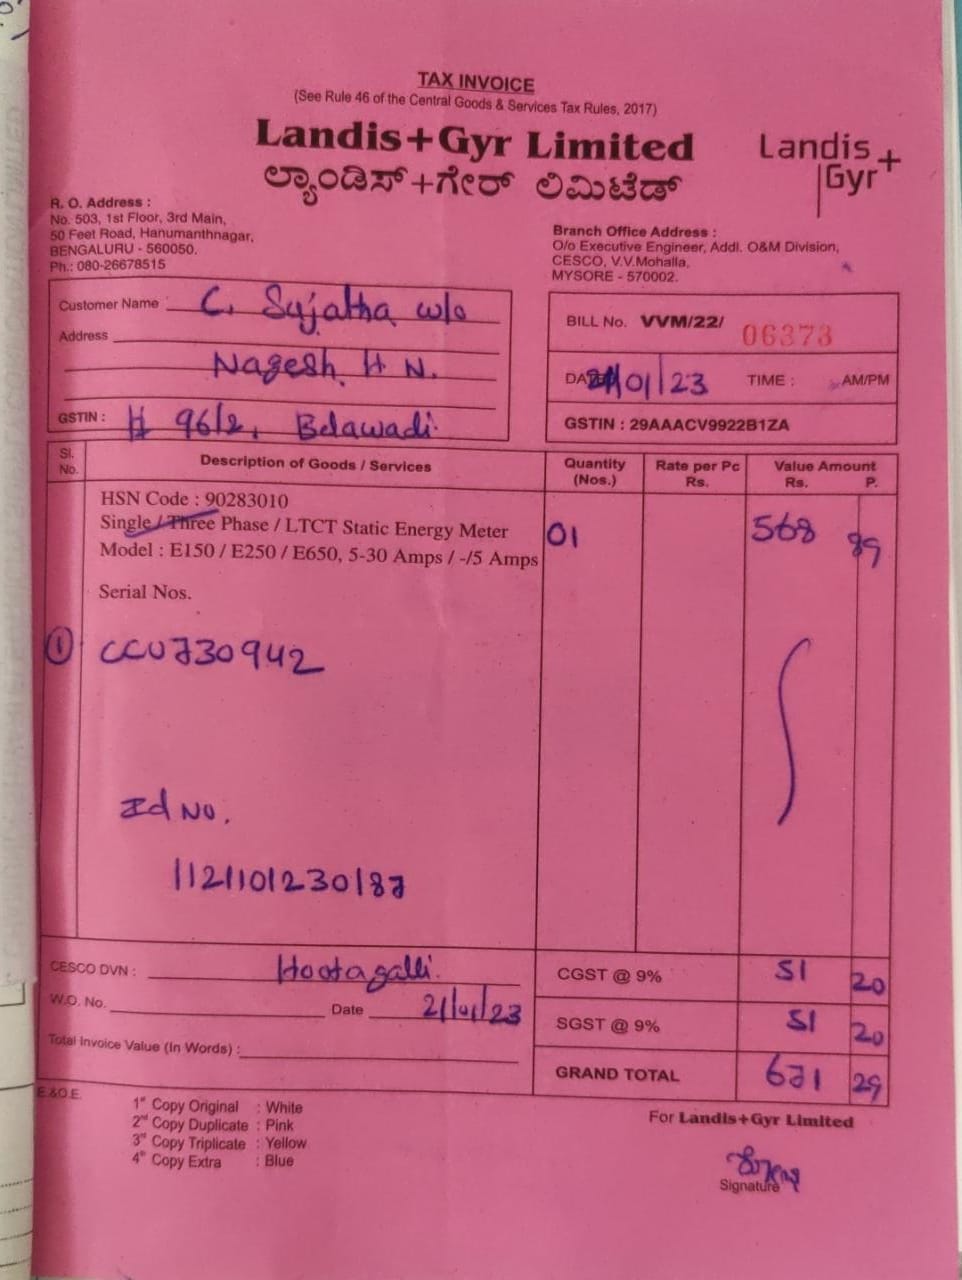 TAX INVOICE
(See Rule 46 of the Central Goods & Services Tax Rules, 2017)
Landis+Gyr Limited
ಲ್ಯಾಂಡಿಸ್+ಗೇರ್ ಲಿಮಿಟೆಡ್
Landis
Gyr+
R. O. Address :
No. 503, 1st Floor, 3rd Main,
50 Feet Road, Hanumanthnagar,
BENGALURU - 560050.
Ph.: 080-26678515
Branch Office Address :
O/o Executive Engineer, Addl. O&M Division,
CESCO, V.V.Mohalla,
MYSORE - 570002.
Customer Name C. Sujatha w/o
Address
Nagesh. H N.
GSTIN : # 96/2, Belawadi.
BILL No. VVM/22/ 06373
DATE 21/01/23 TIME : AM/PM
GSTIN : 29AAACV9922B1ZA
Sl. No. Description of Goods / Services Quantity (Nos.) Rate per Pc Rs. Value Amount Rs. P.
HSN Code : 90283010
Single / Three Phase / LTCT Static Energy Meter 01 568 89
Model : E150 / E250 / E650, 5-30 Amps / -/5 Amps
Serial Nos.
① CCU730942
Id No.
1121101230187
CESCO DVN : Hootagalli.
W.O. No. Date 21/01/23
Total Invoice Value (In Words) :
CGST @ 9% 51 20
SGST @ 9% 51 20
GRAND TOTAL 671 29
E.&O.E.
1st Copy Original : White
2nd Copy Duplicate : Pink
3rd Copy Triplicate : Yellow
4th Copy Extra : Blue
For Landis+Gyr Limited
Signature